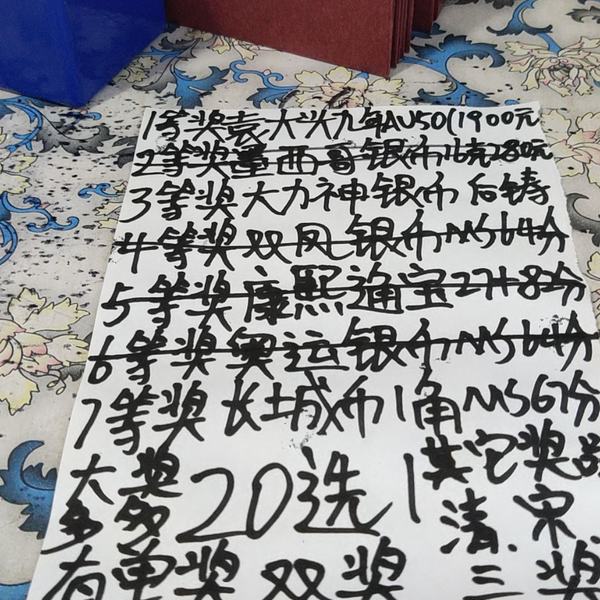 1等奖袁大头九年AU50(1900元
2等奖墨西哥银币16克280元
3等奖大力神银币后铸
4等奖双凤银币MS64分
5等奖康熙通宝27+8分
6等奖奥运银币MS64分
7等奖长城币1角MS67分
大奖多多20选1其它奖
清.宋
有单奖双奖三奖